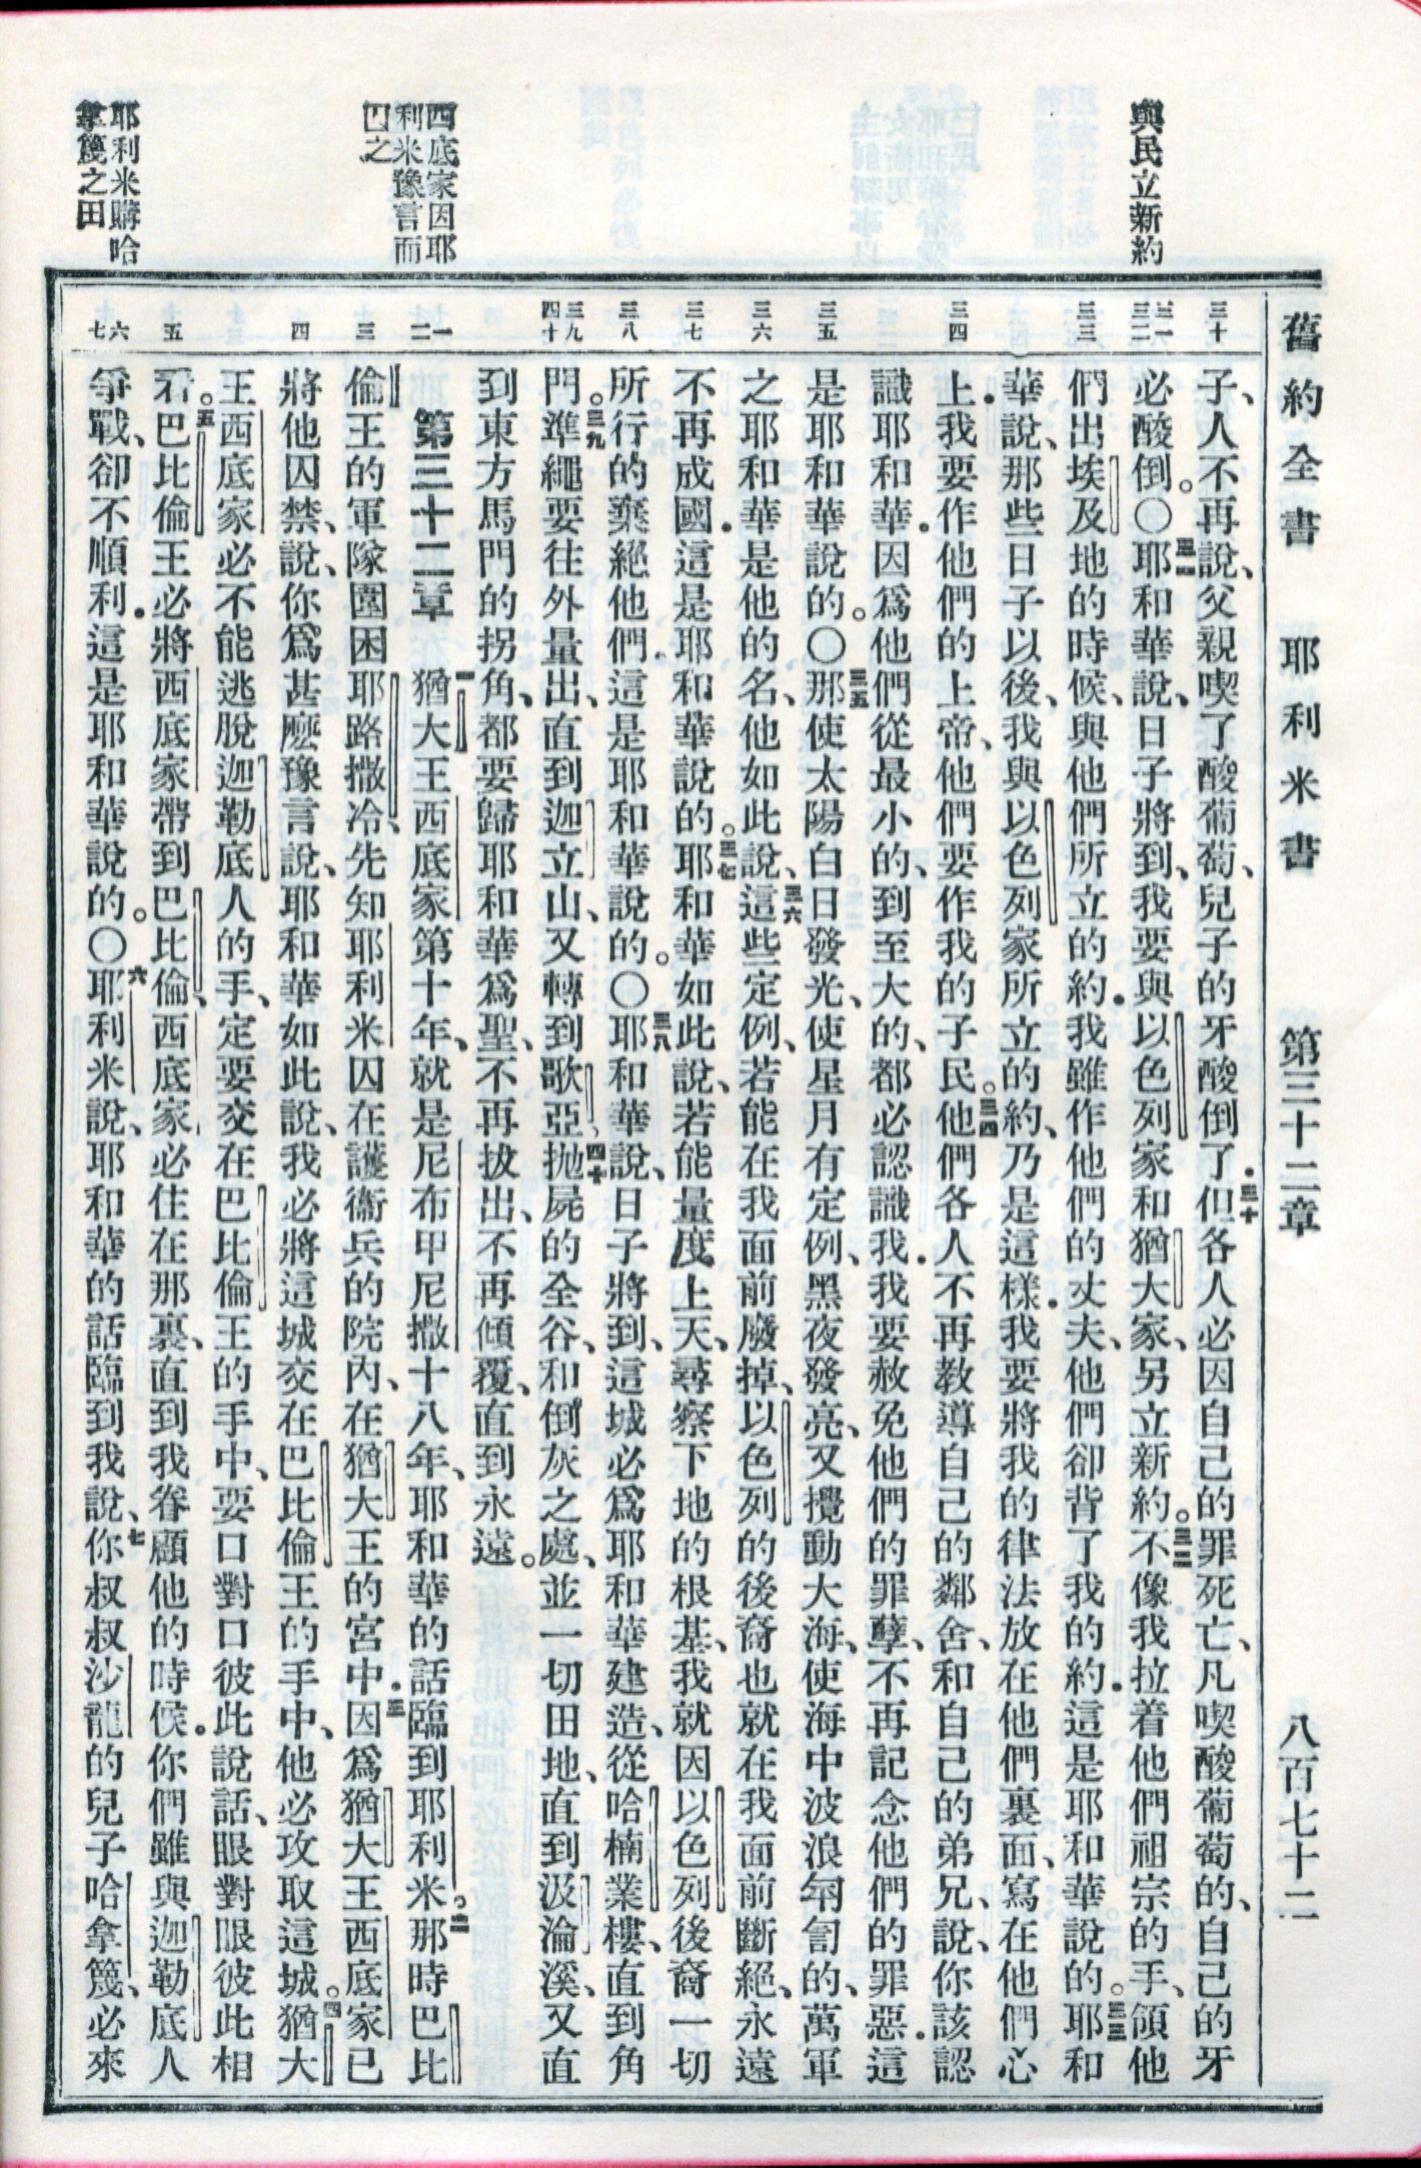 舊約全書 耶利米書 第三十二章 八百七十二
與民立新約
西底家因耶
利米豫言而
囚之
耶利米購哈
拿篾之田
三十
三一
三二
三三
三四
三五
三六
三七
三八
三九
四十
一
二
三
四
五
六
七
子、人不再說、父親喫了酸葡萄、兒子的牙酸倒了．三十但各人必因自己的罪死亡、凡喫酸葡萄的、自己的牙
必酸倒。〇三一耶和華說、日子將到、我要與以色列家和猶大家、另立新約。三二不像我拉着他們祖宗的手、領他
們出埃及地的時候、與他們所立的約．我雖作他們的丈夫、他們卻背了我的約．這是耶和華說的。三三耶和
華說、那些日子以後、我與以色列家所立的約、乃是這樣．我要將我的律法放在他們裏面、寫在他們心
上．我要作他們的上帝、他們要作我的子民。三四他們各人不再教導自己的鄰舍、和自己的弟兄、說、你該認
識耶和華．因爲他們從最小的、到至大的、都必認識我．我要赦免他們的罪孽、不再記念他們的罪惡．這
是耶和華說的。〇三五那使太陽白日發光、使星月有定例、黑夜發亮、又攪動大海、使海中波浪匉訇的、萬軍
之耶和華是他的名、他如此說、三六這些定例、若能在我面前廢掉、以色列的後裔也就在我面前斷絕、永遠
不再成國．這是耶和華說的。三七耶和華如此說、若能量度上天、尋察下地的根基、我就因以色列後裔一切
所行的棄絕他們．這是耶和華說的。〇三八耶和華說、日子將到、這城必爲耶和華建造、從哈楠業樓、直到角
門。三九準繩要往外量出、直到迦立山、又轉到歌亞．四十拋屍的全谷、和倒灰之處、並一切田地、直到汲淪溪、又直
到東方馬門的拐角、都要歸耶和華爲聖、不再拔出、不再傾覆、直到永遠。
第三十二章 一猶大王西底家第十年、就是尼布甲尼撒十八年、耶和華的話臨到耶利米。二那時巴比
倫王的軍隊圍困耶路撒冷、先知耶利米囚在護衞兵的院內、在猶大王的宮中．三因爲猶大王西底家已
將他囚禁、說、你爲甚麼豫言說、耶和華如此說、我必將這城交在巴比倫王的手中、他必攻取這城。四猶大
王西底家必不能逃脫迦勒底人的手、定要交在巴比倫王的手中、要口對口彼此說話、眼對眼彼此相
看。五巴比倫王必將西底家帶到巴比倫、西底家必住在那裏、直到我眷顧他的時候．你們雖與迦勒底人
爭戰、卻不順利．這是耶和華說的。〇六耶利米說、耶和華的話臨到我說、七你叔叔沙龍的兒子哈拿篾、必來